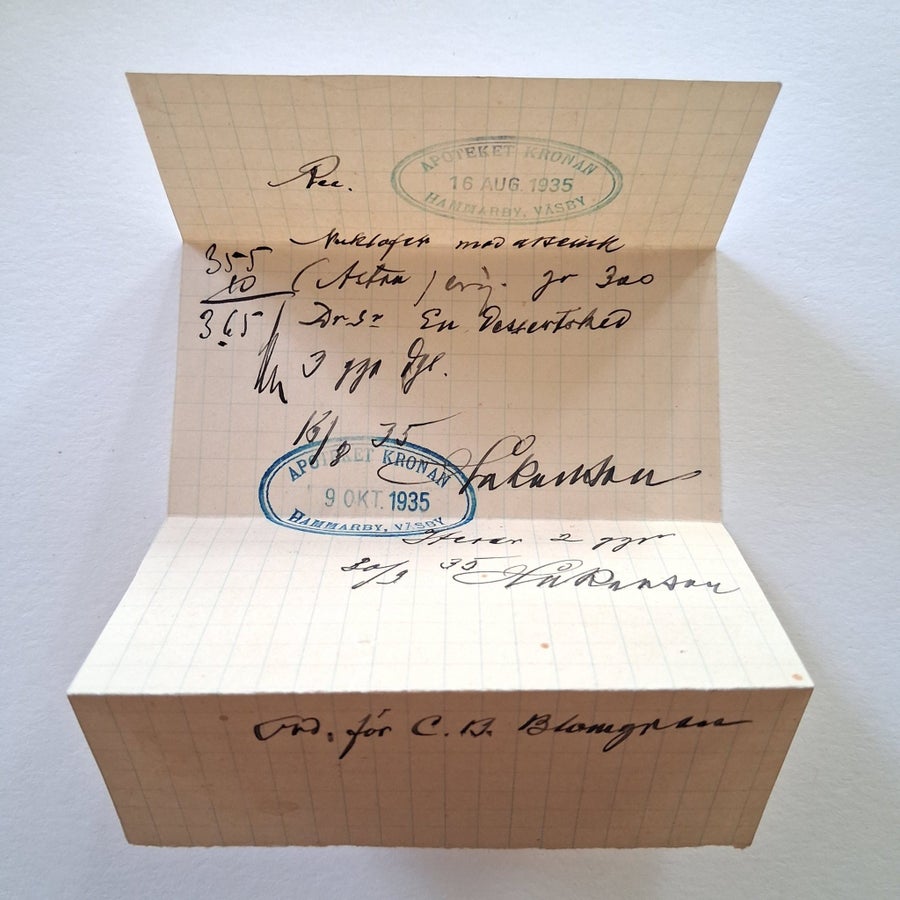 APOTEKET KRONAN
16 AUG. 1935
HAMMARBY, VÄSBY.
Rec.
med arsenik
355
10
365
(Astra) orig. gr 300
En Dessertsked
3 ggr dgl.
15/8 35
Håkansson
APOTEKET KRONAN
9 OKT. 1935
HAMMARBY, VÄSBY
Itereras 2 ggr
30/9 35 Håkansson
Ord. för C. B. Blomgren